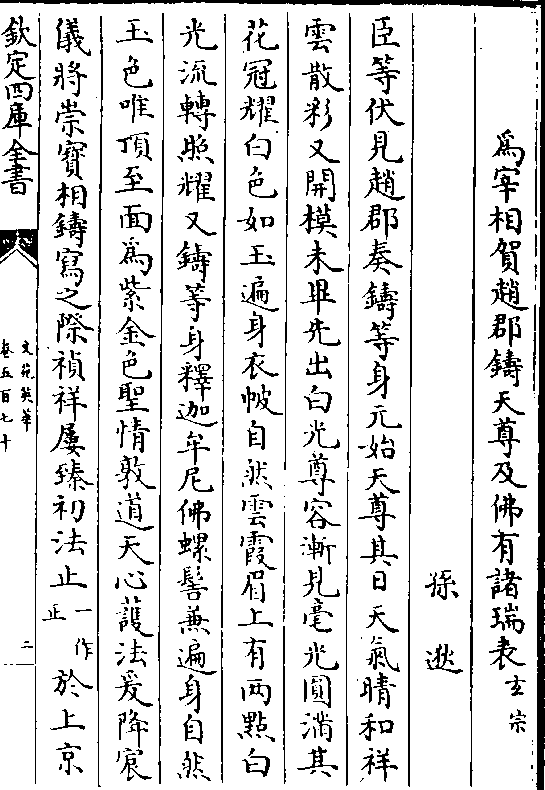 爲宰相賀趙郡鑄天尊及佛有諸瑞表玄宗
孫逖
臣等伏見趙郡奏鑄等身元始天尊其日天氣晴和祥
雲散彩又開模未畢先出白光尊容漸見毫光圓滿其
花冠耀白色如玉遍身衣帔自然雲霞眉上有兩點白
光流轉照耀又鑄等身釋迦牟尼佛螺髻兼遍身自然
玉色唯頂至面爲紫金色聖情敦道天心護法爰降宸
儀將崇寶相鑄寫之際禎祥屢臻初法止一作正於上京
欽定四庫全書
文苑英華
卷五百七十
二